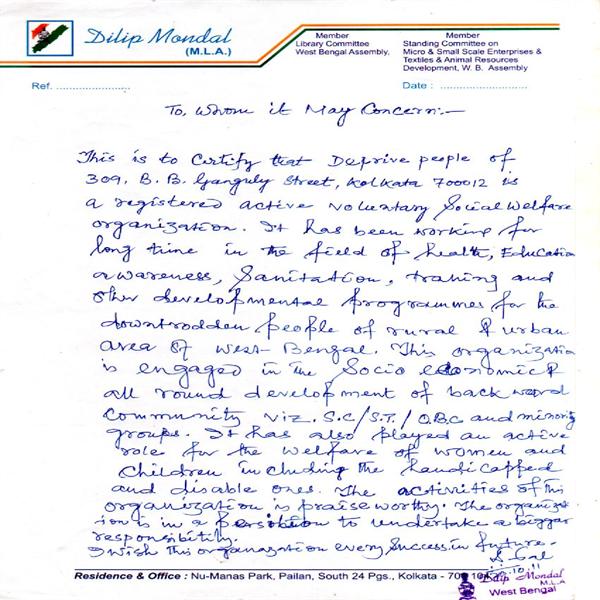 Dilip Mondal
(M.L.A.)
Member
Library Committee
West Bengal Assembly,
Member
Standing Committee on
Micro & Small Scale Enterprises &
Textiles & Animal Resources
Development, W. B. Assembly
Ref. ........................
Date : ............................
To, Whom it May Concern:-
This is to Certify that Deprive people of
309, B. B. Ganguly Street, Kolkata 700012 is
a registered active voluntary Social Welfare
organization. It has been working for
long time in the field of health, Education
awareness, Sanitation, training and
other developmental programmes for the
downtrodden people of rural & urban
area of West-Bengal. This organization
is engaged in the Socio economic &
all round development of backward
Community viz. S.C/S.T./O.B.C and minority
groups. It has also played an active
role for the welfare of women and
Children including the handicapped
and disable ones. The activities of this
organization is praiseworthy. The organizat-
ion is in a Position to undertake a bigger
responsibility.
I wish this organazation every Success in future.
Residence & Office : Nu-Manas Park, Pailan, South 24 Pgs., Kolkata - 700 104
Dilip Mondal
M.L.A
West Bengal